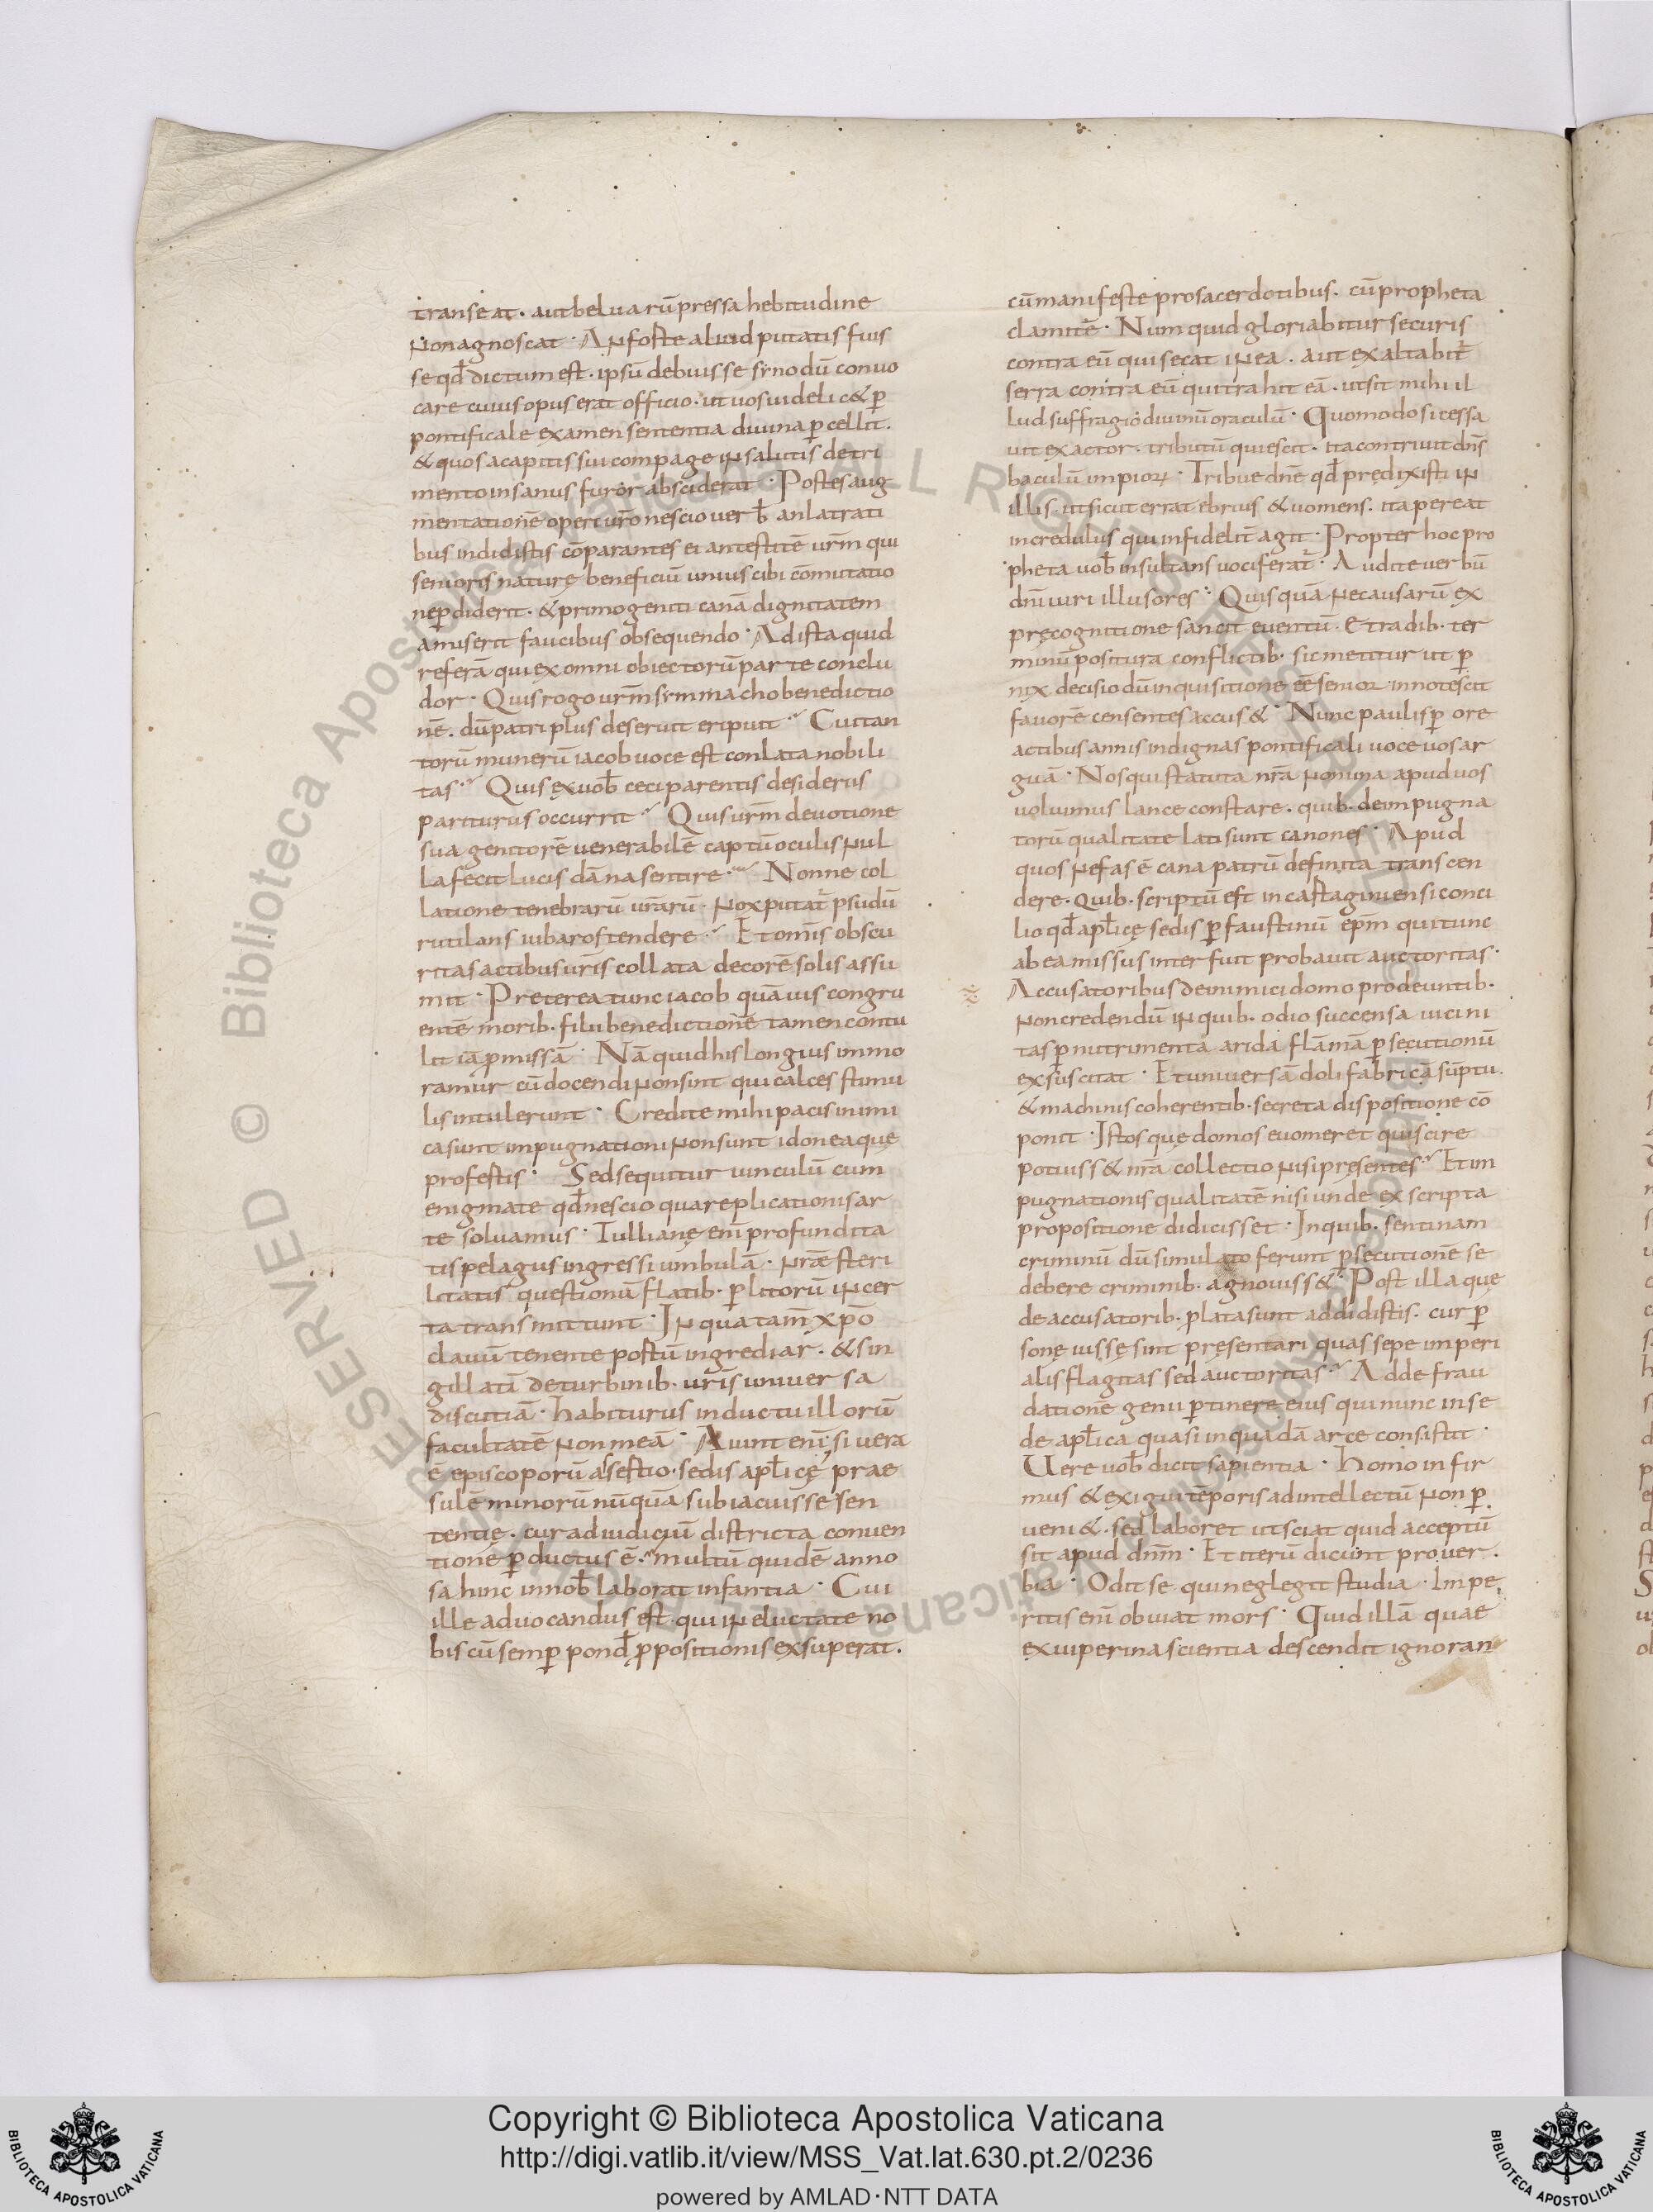 transeat. aut beluarū pressa hebitudine
non agnoscat. An foste aliud putatis fuis
se qđ dictum est. ipsū debuisse synodū conuo
care cuius opus erat officio. ut uos uidelic& ꝑ
pontificale examen sententia diuina ꝑcellit.
& quos a capitis sui compage in salutis detri
mento insanus furor absciderat. Postes aug
mentationē operi ur̄o nescio uerb̄ an latrati
bus indidistis cōparantes ei antestitē urm̄ qui
senioris naturę beneficiū unius cibi cōmutatio
ne ꝑdiderit. & primogeniti canā dignitatem
amiserit faucibus obsequendo. Ad ista quid
referā qui ex omni obiectorū parte conclu
dor. Quis rogo urm̄ symmacho benedictio
nē. dū patri plus deseruit eripuit. Cui tan
torū munerū iacob uoce est conlata nobili
tas. Quis ex uob̄ ceci parentis desideriis
pariturus occurrit. Quis urm̄ deuotione
sua genitorē uenerabilē captū oculis nul
la fecit lucis dāna sentire. Nonne col
latione tenebrarū urārū. nox putat̄ ꝑsudū
rutilans iubar ostendere. Et omīs obscu
ritas actibus urīs collata decorē solis assu
mit. Preterea tunc iacob quāuis congru
entē morib. filii benedictionē tamen contu
lit iā ꝓmissā. Nā quid his longius immo
ramur cū docendi non sint qui calces stimu
lis intulerunt. Credite mihi pacis inimi
ca sunt impugnationi non sunt idonea quę
profestis. Sed sequitur uinculū cum
enigmate qđ nescio qua replicationis ar
te soluamus. Tullianę enī profundita
tis pelagus ingressi umbulā. nr̄ae steri
litatis questionū flatib. ꝑ litorū incer
ta transmittunt. In qua tam̄ xp̄o
clauū tenente postū ingrediar. & sin
gillatī de turbinib. urīs uniuersa
discutiā. habiturus in ductu illorū
facultatē non meā. Aiunt enī si uera
ē episcoporū asestio. sedis apl̄icę prae
sulē minorū nūquā subiacuisse sen
tentię. cur ad iudiciū districta conuen
tione ꝑductus ē. multū quidē anno
sa hinc innob̄ laborat infantia. Cui
ille aduocandus est. qui in eluctate no
biscū semꝑ pond̄ ꝓpositionis exsuperat.
cū manifeste pro sacerdotibus. cū propheta
clamitē. Num quid gloriabitur securis
contra eū qui secat in ea. aut exaltabit̄
serra contra eū qui trahit eā. ut sit mihi il
lud suffragio diuinū oraculū. Quomodo si cessa
uit exactor. tributū quiescit. ita contriuit dn̄s
baculū impiorꝝ. Tribue dnē qđ prędixisti in
illis. ut sicut errat ebrius & uomens. ita pereat
incredulus qui infidelit̄ agit. Propter hoc pro
pheta uob̄ insultans uociferat̄. Audite uerbū
dnī uiri illusores. Quisquā ne causarū ex
pręcognitione sancit euentū. Et radib. ter
minū positura conflictib. sic metitur ut ꝑ
nix decisio dū inquisitione eē seniorꝝ innotescit
fauorē censentes accus&. Nunc paulisꝑ ore
actibus annis indignas pontificali uoce uos ar
guā. Nos qui statuta nrā nomina apud uos
uoluimus lance constare. quib. de impugna
torū qualitate lati sunt canones. Apud
quos nefas ē cana patrū definita transcen
dere. quib. scriptū est in castaginiensi conci
lio qđ apl̄icę sedis ꝑ faustinū epm̄ qui tunc
ab ea missus interfuit probauit auctoritas.
Accusatoribus de inimici domo prodeuntib.
non credendū in quib. odio succensa uicini
tas ꝑ nutrimenta arida flāmā ꝑsecutionū
exsuscitat. Et uniuersā doli fabricā sūptu.
& machinis coherentib. secreta dispositione cō
ponit. Istos quę domos euomeret qui scire
potuiss& nrā collectio nisi pręsentes. Et im
pugnationis qualitatē nisi unde ex scripta
propositione didicisset. In quib. sentinam
criminū dū simulato ferunt ꝑsecutionē se
debere criminib. agnouiss&. Post illa quę
de accusatorib. ꝓlata sunt addidistis. cur ꝑ
sonę iussę sint pręsentari quas sepe imperi
alis flagitas sed auctoritas. Adde frau
dationē genii ꝑtinere eius qui nunc in se
de apl̄ica quasi in quadā arce consistit.
Uere uob̄ dicit sapientia. homo infir
mus & exigui tēporis ad intellectū non ꝑ
ueni&. sed laboret ut sciat quid acceptū
sit apud dnm̄. Et iterū dicunt prouer.
bia. Odit se qui neglegit studia. Impe
ritis enī obuiat mors. Quid illā quae
ex uiperina scientia descendit ignoran
Copyright © Biblioteca Apostolica Vaticana
http://digi.vatlib.it/view/MSS_Vat.lat.630.pt.2/0236
powered by AMLAD·NTT DATA
BIBLIOTECA APOSTOLICA VATICANA
BIBLIOTECA APOSTOLICA VATICANA